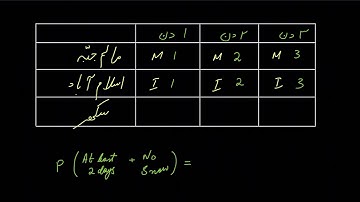 ۱ دن ۲ دن ۳ دن
مالم جبّہ M 1 M 2 M 3
اسلام آباد I 1 I 2 I 3
سکھر
P (At least 2 days + No Snow) =